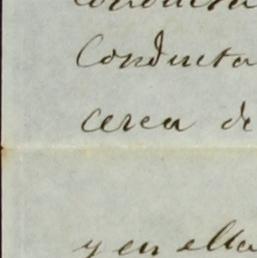 Conducta
cerca de
y en ella